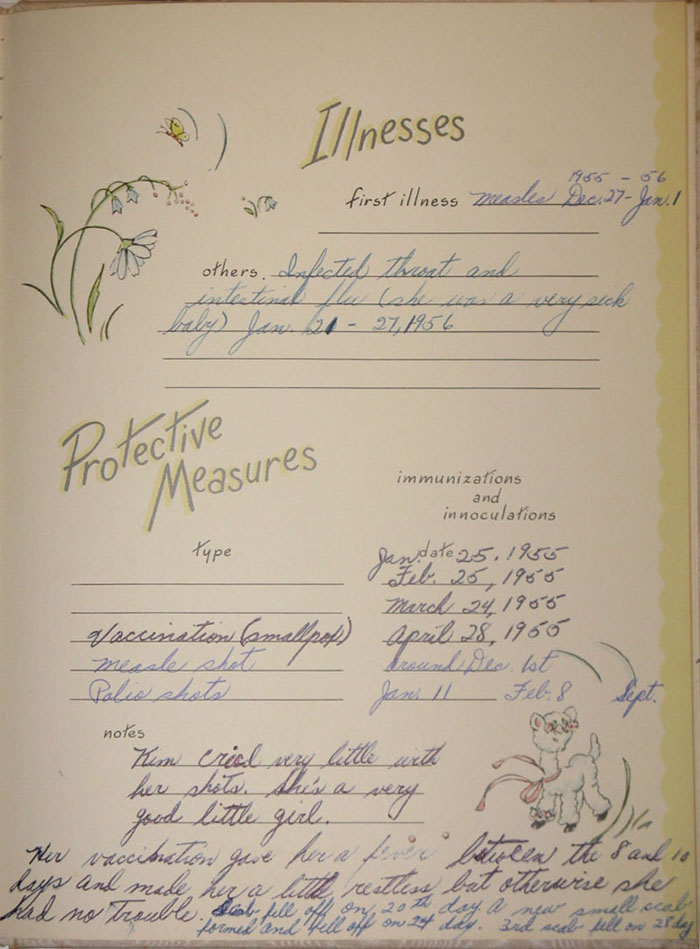 Illnesses
1955 - 56
first illness measles Dec. 27 - Jan. 1
others. Infected throat and
intestinal flu (she was a very sick
baby) Jan. 21 - 27, 1956
Protective
Measures
immunizations
and
innoculations
type
date
Jan. 25, 1955
Feb. 25, 1955
March 24, 1955
Vaccination (smallpox) April 28, 1955
measle shot around Dec. 1st
Polio shots Jan. 11 Feb. 8 Sept.
notes
Kim cried very little with
her shots. She's a very
good little girl.
Her vaccination gave her a fever between the 8 and 10
days and made her a little restless but otherwise she
had no trouble. Scab fell off on 20th day a new small scab
formed and fell off on 24 day. 3rd scab fell on 28 day